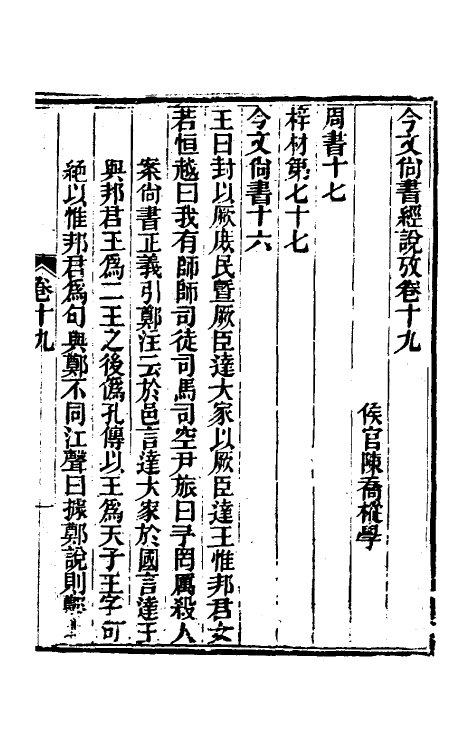 今文尙書經說攷卷十九
侯官陳喬樅學
周書十七
梓材第七十七
今文尙書十六
王曰封以厥庶民暨厥臣達大家以厥臣達王惟邦君女
若恒越曰我有師師司徒司馬司空尹旅曰予罔厲殺人
案尙書正義引鄭注云於邑言達大家於國言達王
與邦君王爲二王之後僞孔傳以王爲天子王字可
絕以惟邦君爲句與鄭不同江聲曰據鄭說則
卷十九
一